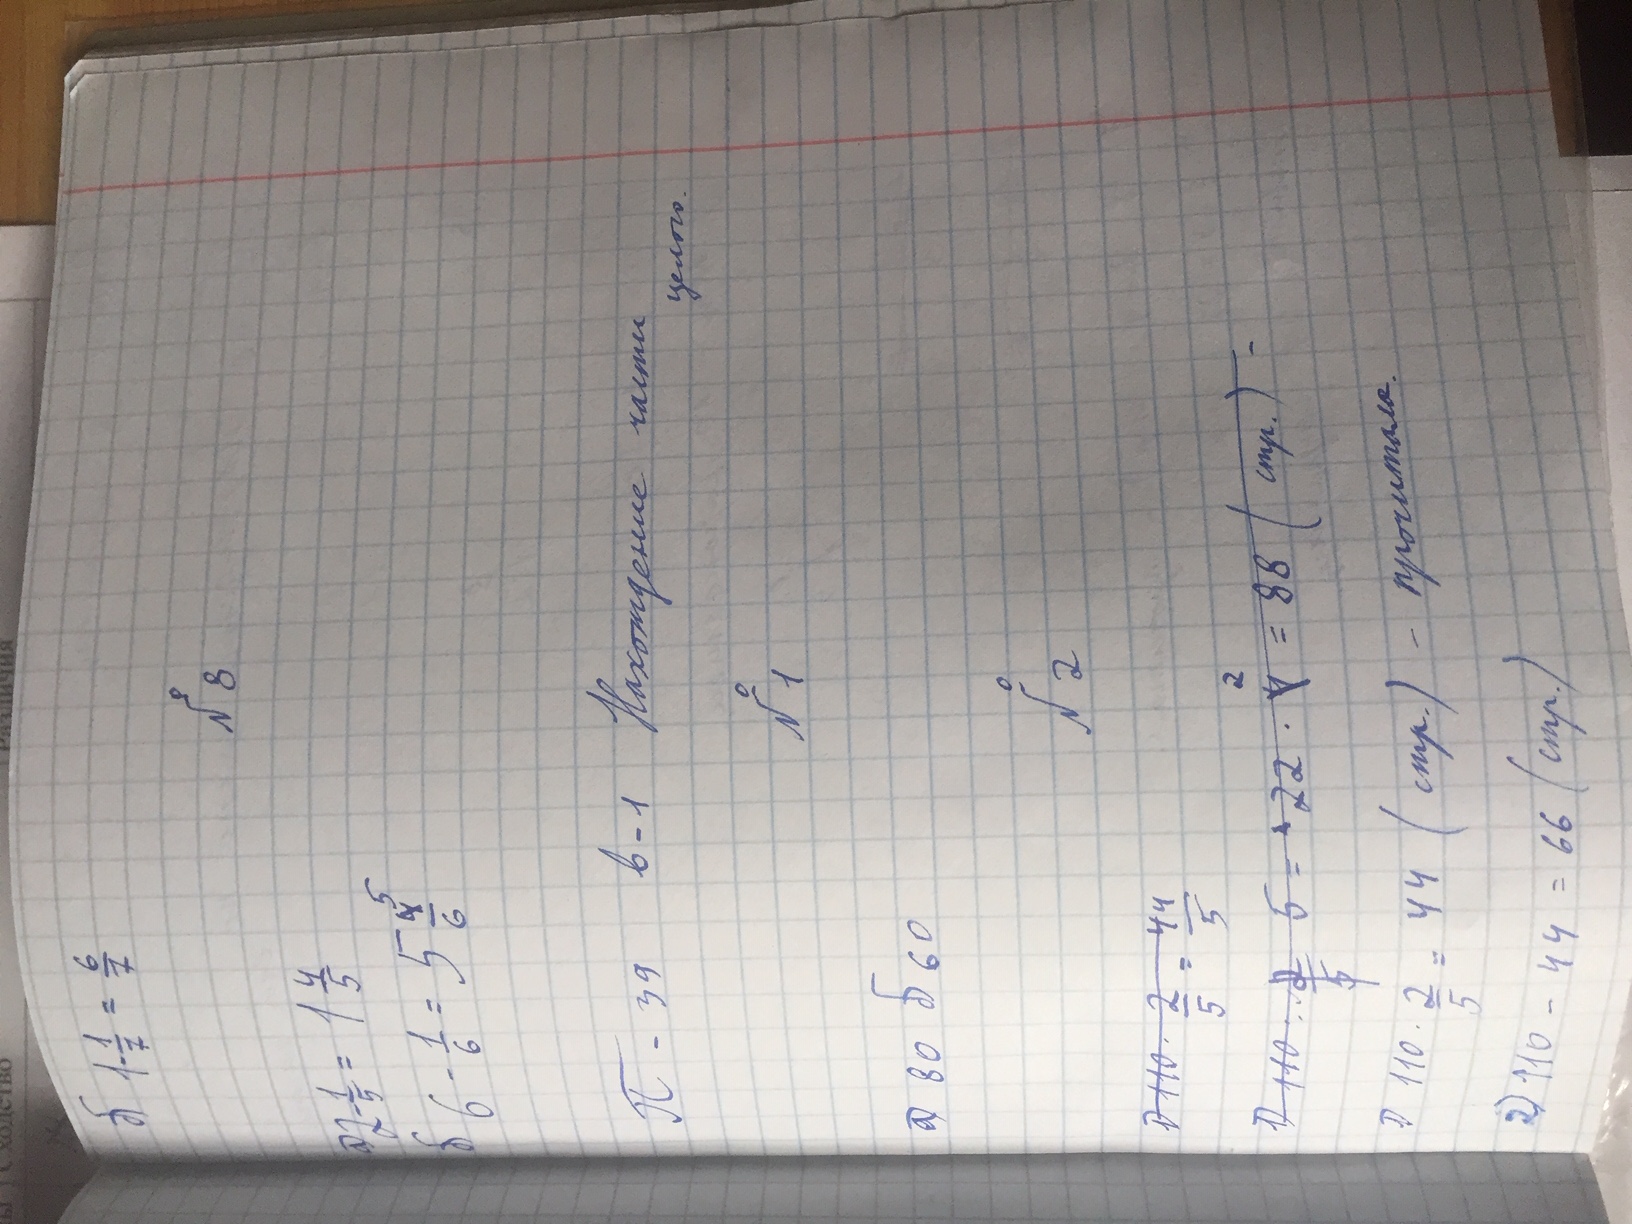 б 1-1/7 = 6/7
№8
а) 2-1/5 = 1 4/5
б 6 - 1/6 = 5 5/6
П - 39 в-1 Нахождение части
целого.
№1
а) 80 б 60
№2
1) 110 · 2/5 = 44/5
1) 110 : 5 = 22 · 2 = 88 (стр.) -
1) 110 · 2/5 = 44 (стр.) - прочитала.
2) 110 - 44 = 66 (стр.)